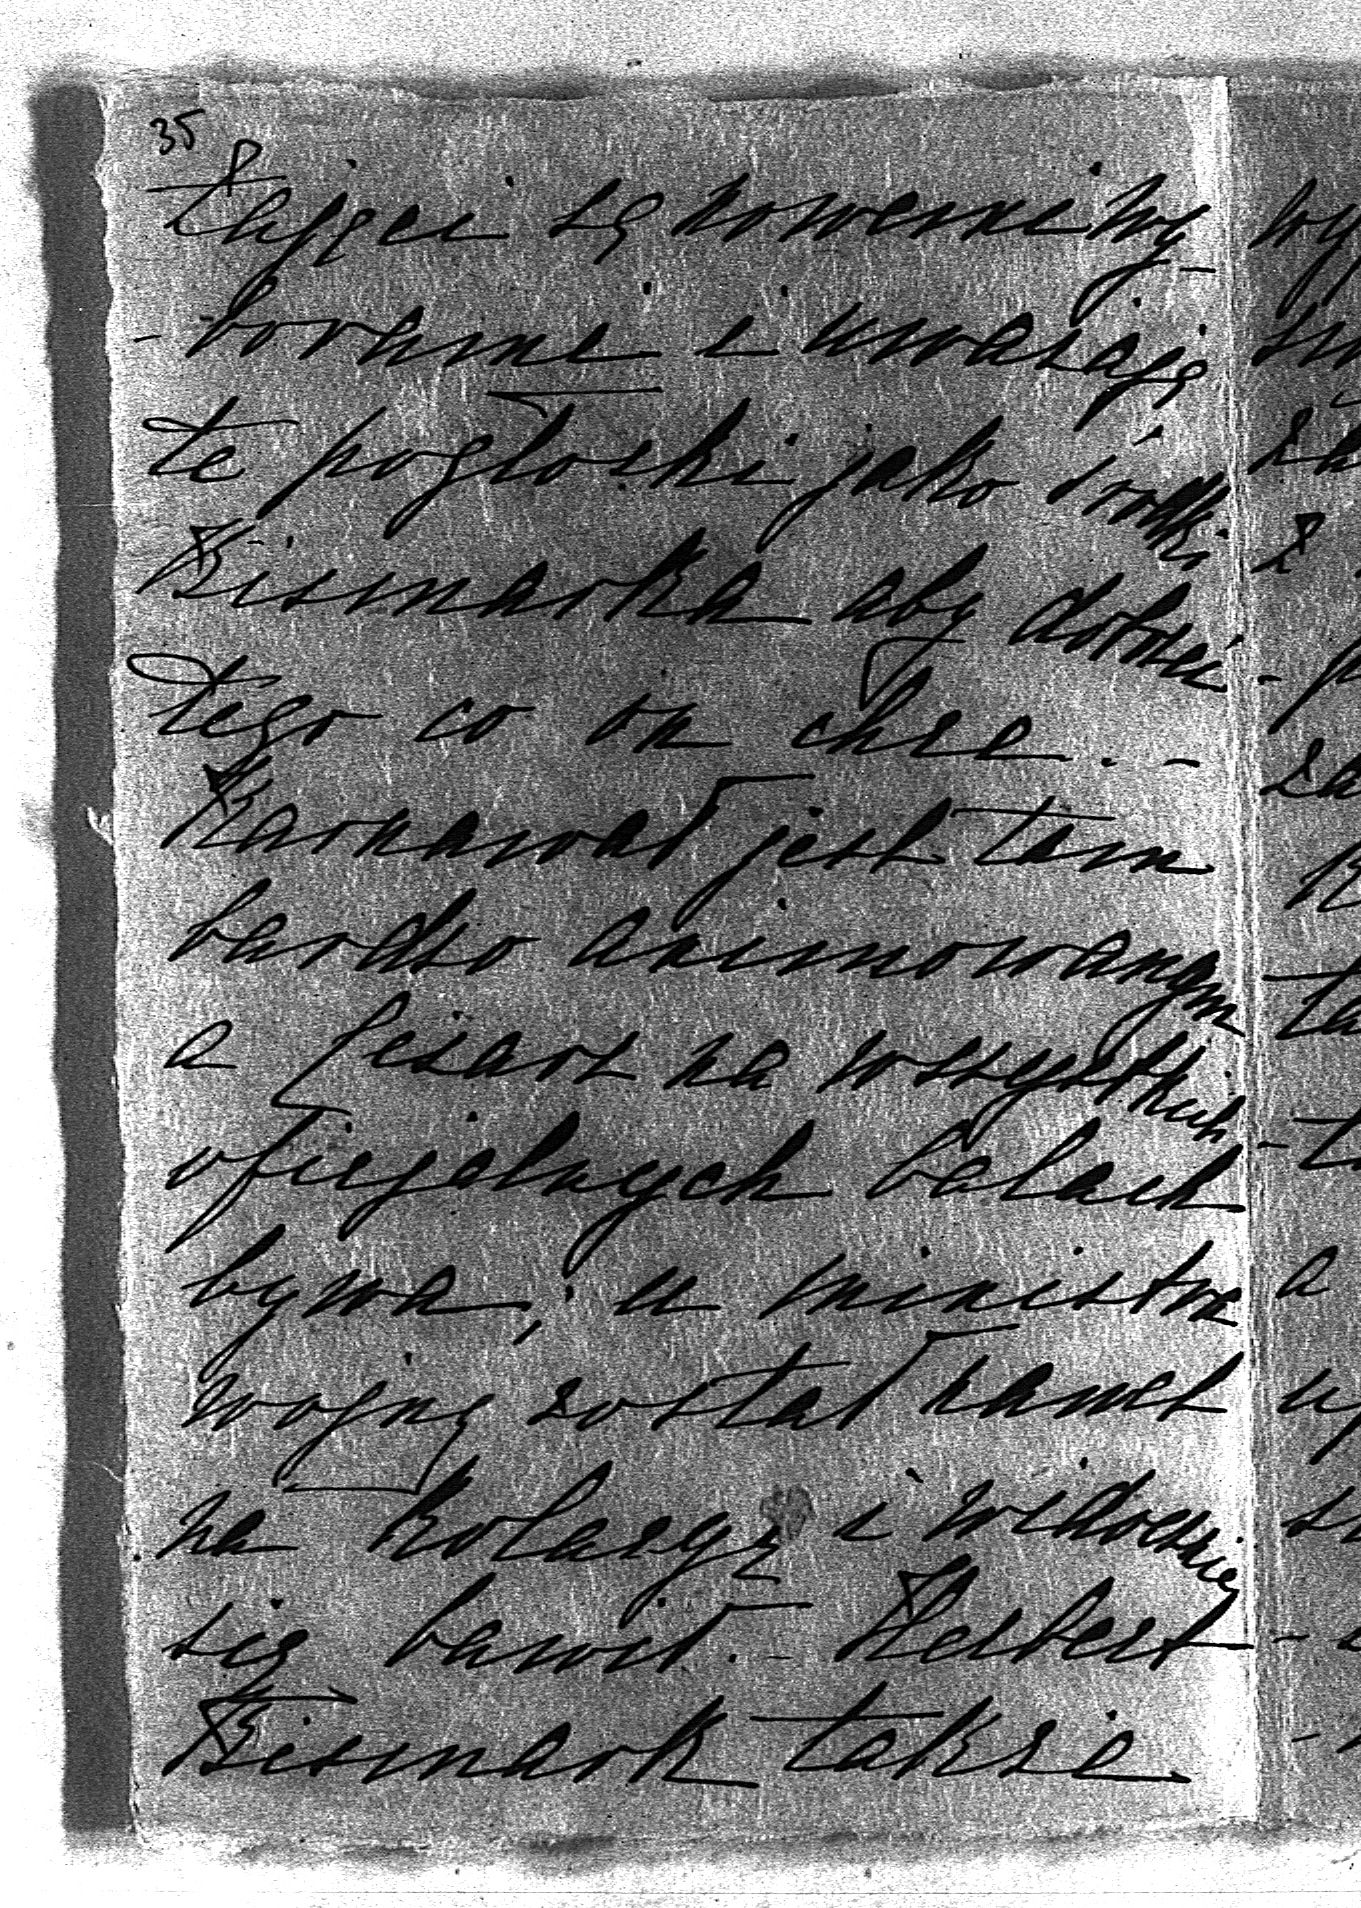 35
zajęci są nowemi wy-
-borami i uważają
te pogłoski jako środki
Bismarka aby dotrzeć
tego co on chce. -
Karnawał jest tam
bardzo animowanym
a Cesarz na wszystkich
oficjalnych balach
bywa, u ministra
wojny został nawet
na kolacyę i widocznie
się bawił. - Herbert
Bismark także